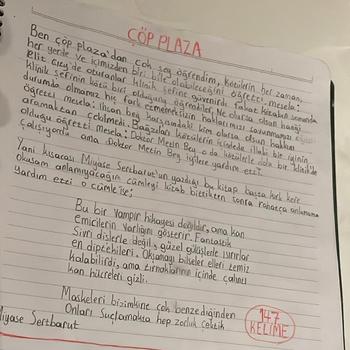 ÇÖP PLAZA
Ben çöp plaza'dan çok şey öğrendim, kötülerin her zaman,
her yerde ve içimizden biri bile olabileceğini öğretti mesela:
Elit Grey'de oturanlar klinik şefine güvenirdi fakat kitabın sonunda
klinik şefinin kötü biri olduğunu öğrendiler. Ne olursa olsun hangi
durumda olmamız hiç fark etmeksizin haklarımızı savunmamızı
öğretti mesela: İhsan bey karşısındaki kim olursa olsun hakkını
aramaktan çekilmedi. Bazıları kötülerin içinde illaki bir iyinin
olduğu öğretti mesela: Doktor Metin Bey o da kötülerle dolu bir klinik'de
çalışıyordu ama Doktor Metin Bey iyilere yardım etti.
Yani kısacası Miyase Sertbarut'un yazdığı bu kitap başta kırk kere
okusam anlamıyacağım cümleyi kitab bittikten sonra rahatça anlamama
yardım etti o cümle ise;
Bu bir vampir hikayesi değildir, ama kan
emicilerin varlığını gösterir. Fantastik
Sivri dişlerle değil, güzel gülüşlerle ısırırlar
en diptekileri. Okşamayı bilseler elleri temiz
kalabilirdi, ama tırnaklarının içinde çalıntı
kan hücreleri gizli.
Maskeleri bizimkine çok benzediğinden
Onları Suçlamakta hep zorluk çektik
Miyase Sertbarut
147
KELİME